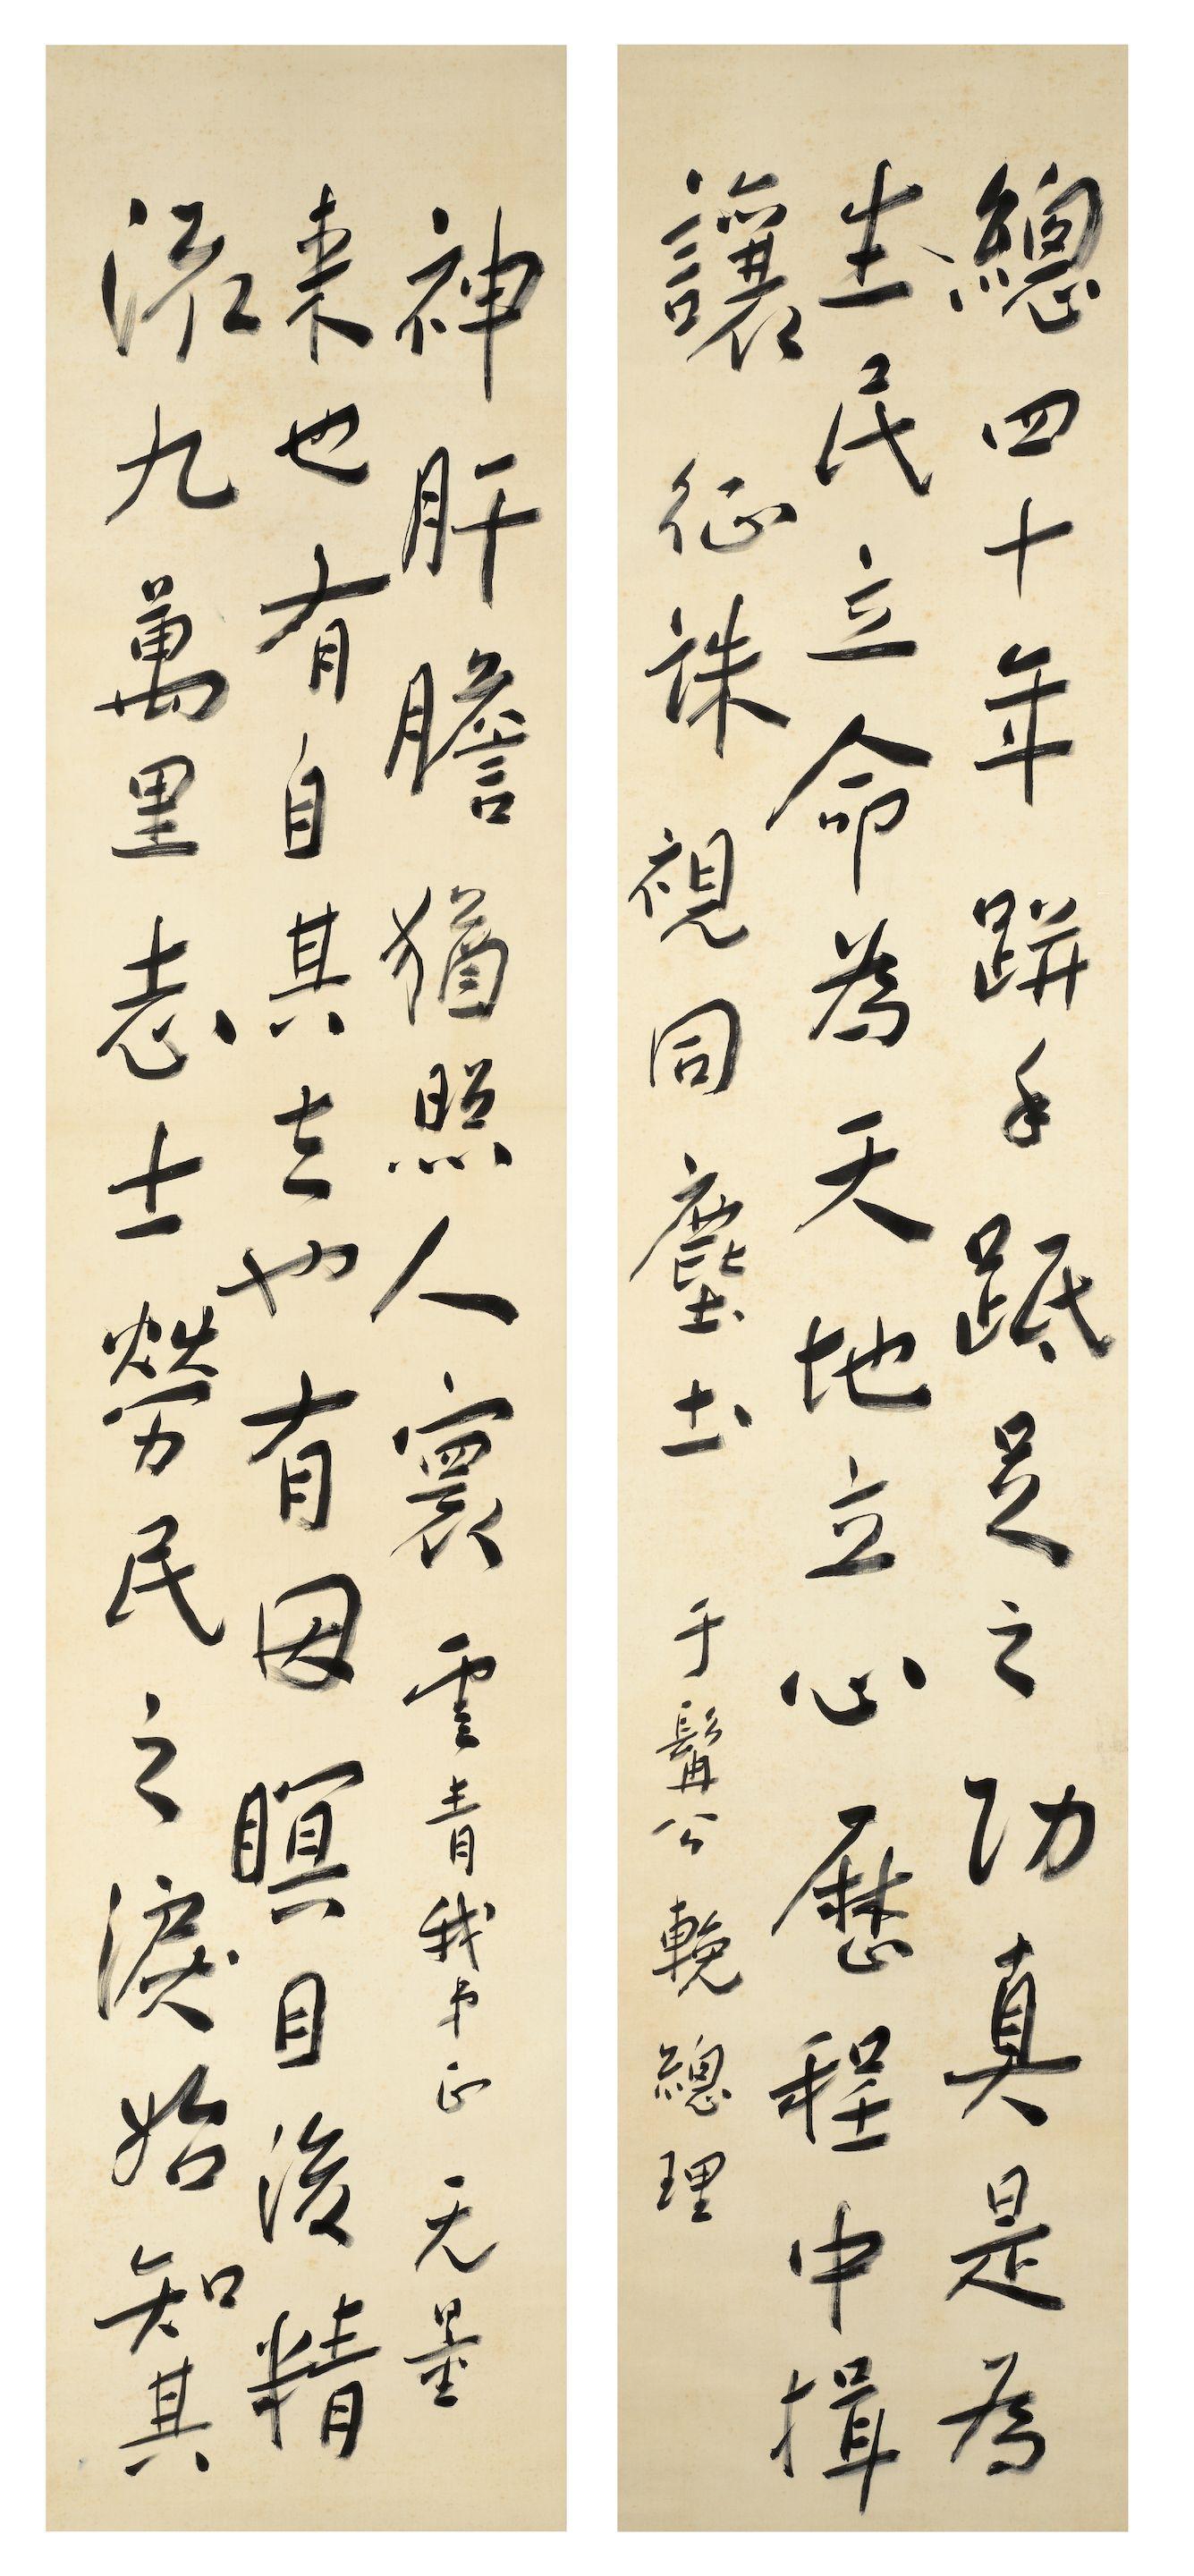 總四十年跰手胝足之功真是為
生民立命為天地立心歷程中揖
讓征誅視同塵土 于髯公輓總理
流九萬里志士勞民之淚始知其
來也有自其去也有因瞑目後精
神肝膽猶照人寰 雲青我弟正 无量